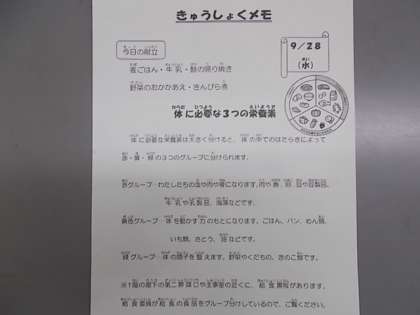 きゅうしょくメモ
今日の献立
9/28
(水)
麦ごはん・牛乳・鮭の照り焼き
野菜のおかかあえ・きんぴら煮
体に必要な3つの栄養素
体に必要な栄養素は大きく分けると、体の中でのはたらきによって
赤・黄・緑の3つのグループに分けられます。
赤グループ…わたしたちの血や肉や骨になります。肉や魚、卵、豆や豆製品、
牛乳や乳製品、海藻などです。
黄色グループ…体を動かす力のもとになります。ごはん、パン、めん類、
いも類、さとう、油などです。
緑グループ…体の調子を整えます。野菜やくだもの、きのこ類です。
※1階の廊下の第二理課じや主事室の近くに、給食黒板があります。
給食委員が給食の食品をグループ分けしているので、ご覧ください。